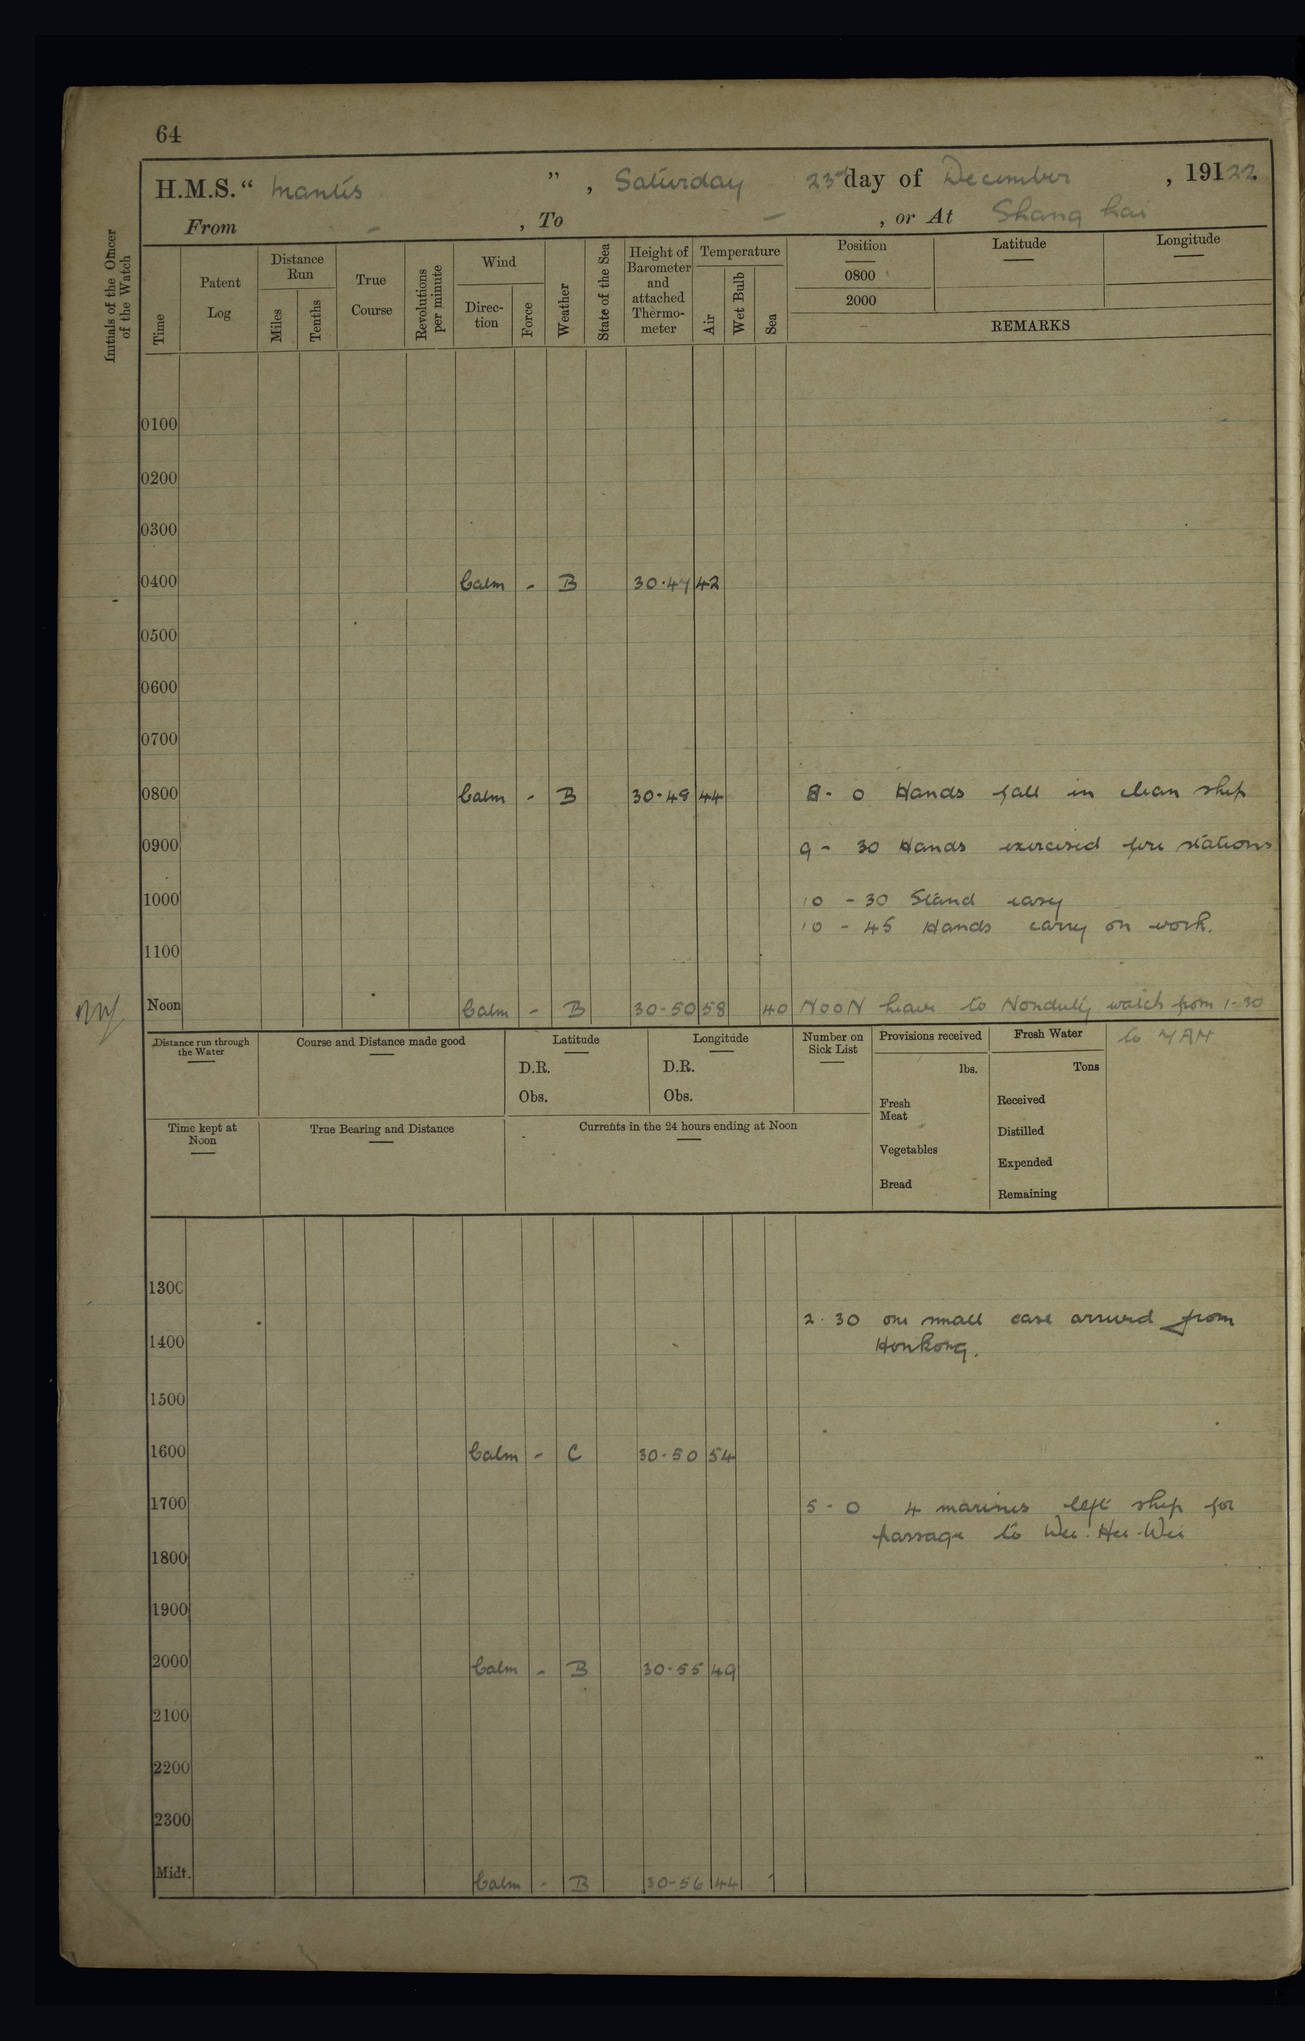 64
H.M.S. “ Mantis ” , Saturday 23rd day of December , 19122.
From - , To - , or At Shang hai
Initials of the Officer of the Watch
Time
Patent Log
Distance Run
Miles
Tenths
True Course
Revolutions per minute
Wind
Direc- tion
Force
Weather
State of the Sea
Height of Barometer and attached Thermo- meter
Temperature
Air
Wet Bulb
Sea
Position
0800
2000
Latitude
Longitude
REMARKS
0100
0200
0300
0400 Calm - B 30.47 42
0500
0600
0700
0800 Calm - B 30.49 44 8 - 0 Hands fall in clean ship
0900 9 - 30 Hands exercised fire stations
1000 10 - 30 Stand easy
10 - 45 Hands carry on work.
1100
Noon Calm - B 30-50 58 40 NOON leave to Nonduty watch from 1-30
to 7AM
Distance run through the Water
Course and Distance made good
Latitude
D.R.
Obs.
Longitude
D.R.
Obs.
Number on Sick List
Provisions received
lbs.
Fresh Meat
Vegetables
Bread
Fresh Water
Tons
Received
Distilled
Expended
Remaining
Time kept at Noon
True Bearing and Distance
Currents in the 24 hours ending at Noon
1300
2.30 one small case arrived from
1400 Honkong.
1500
1600 Calm - C 30-50 54
1700 5 - 0 4 marines left ship for
passage to Wei-Hei-Wei
1800
1900
2000 Calm - B 30-55 49
2100
2200
2300
Midt. Calm - B 30-56 44